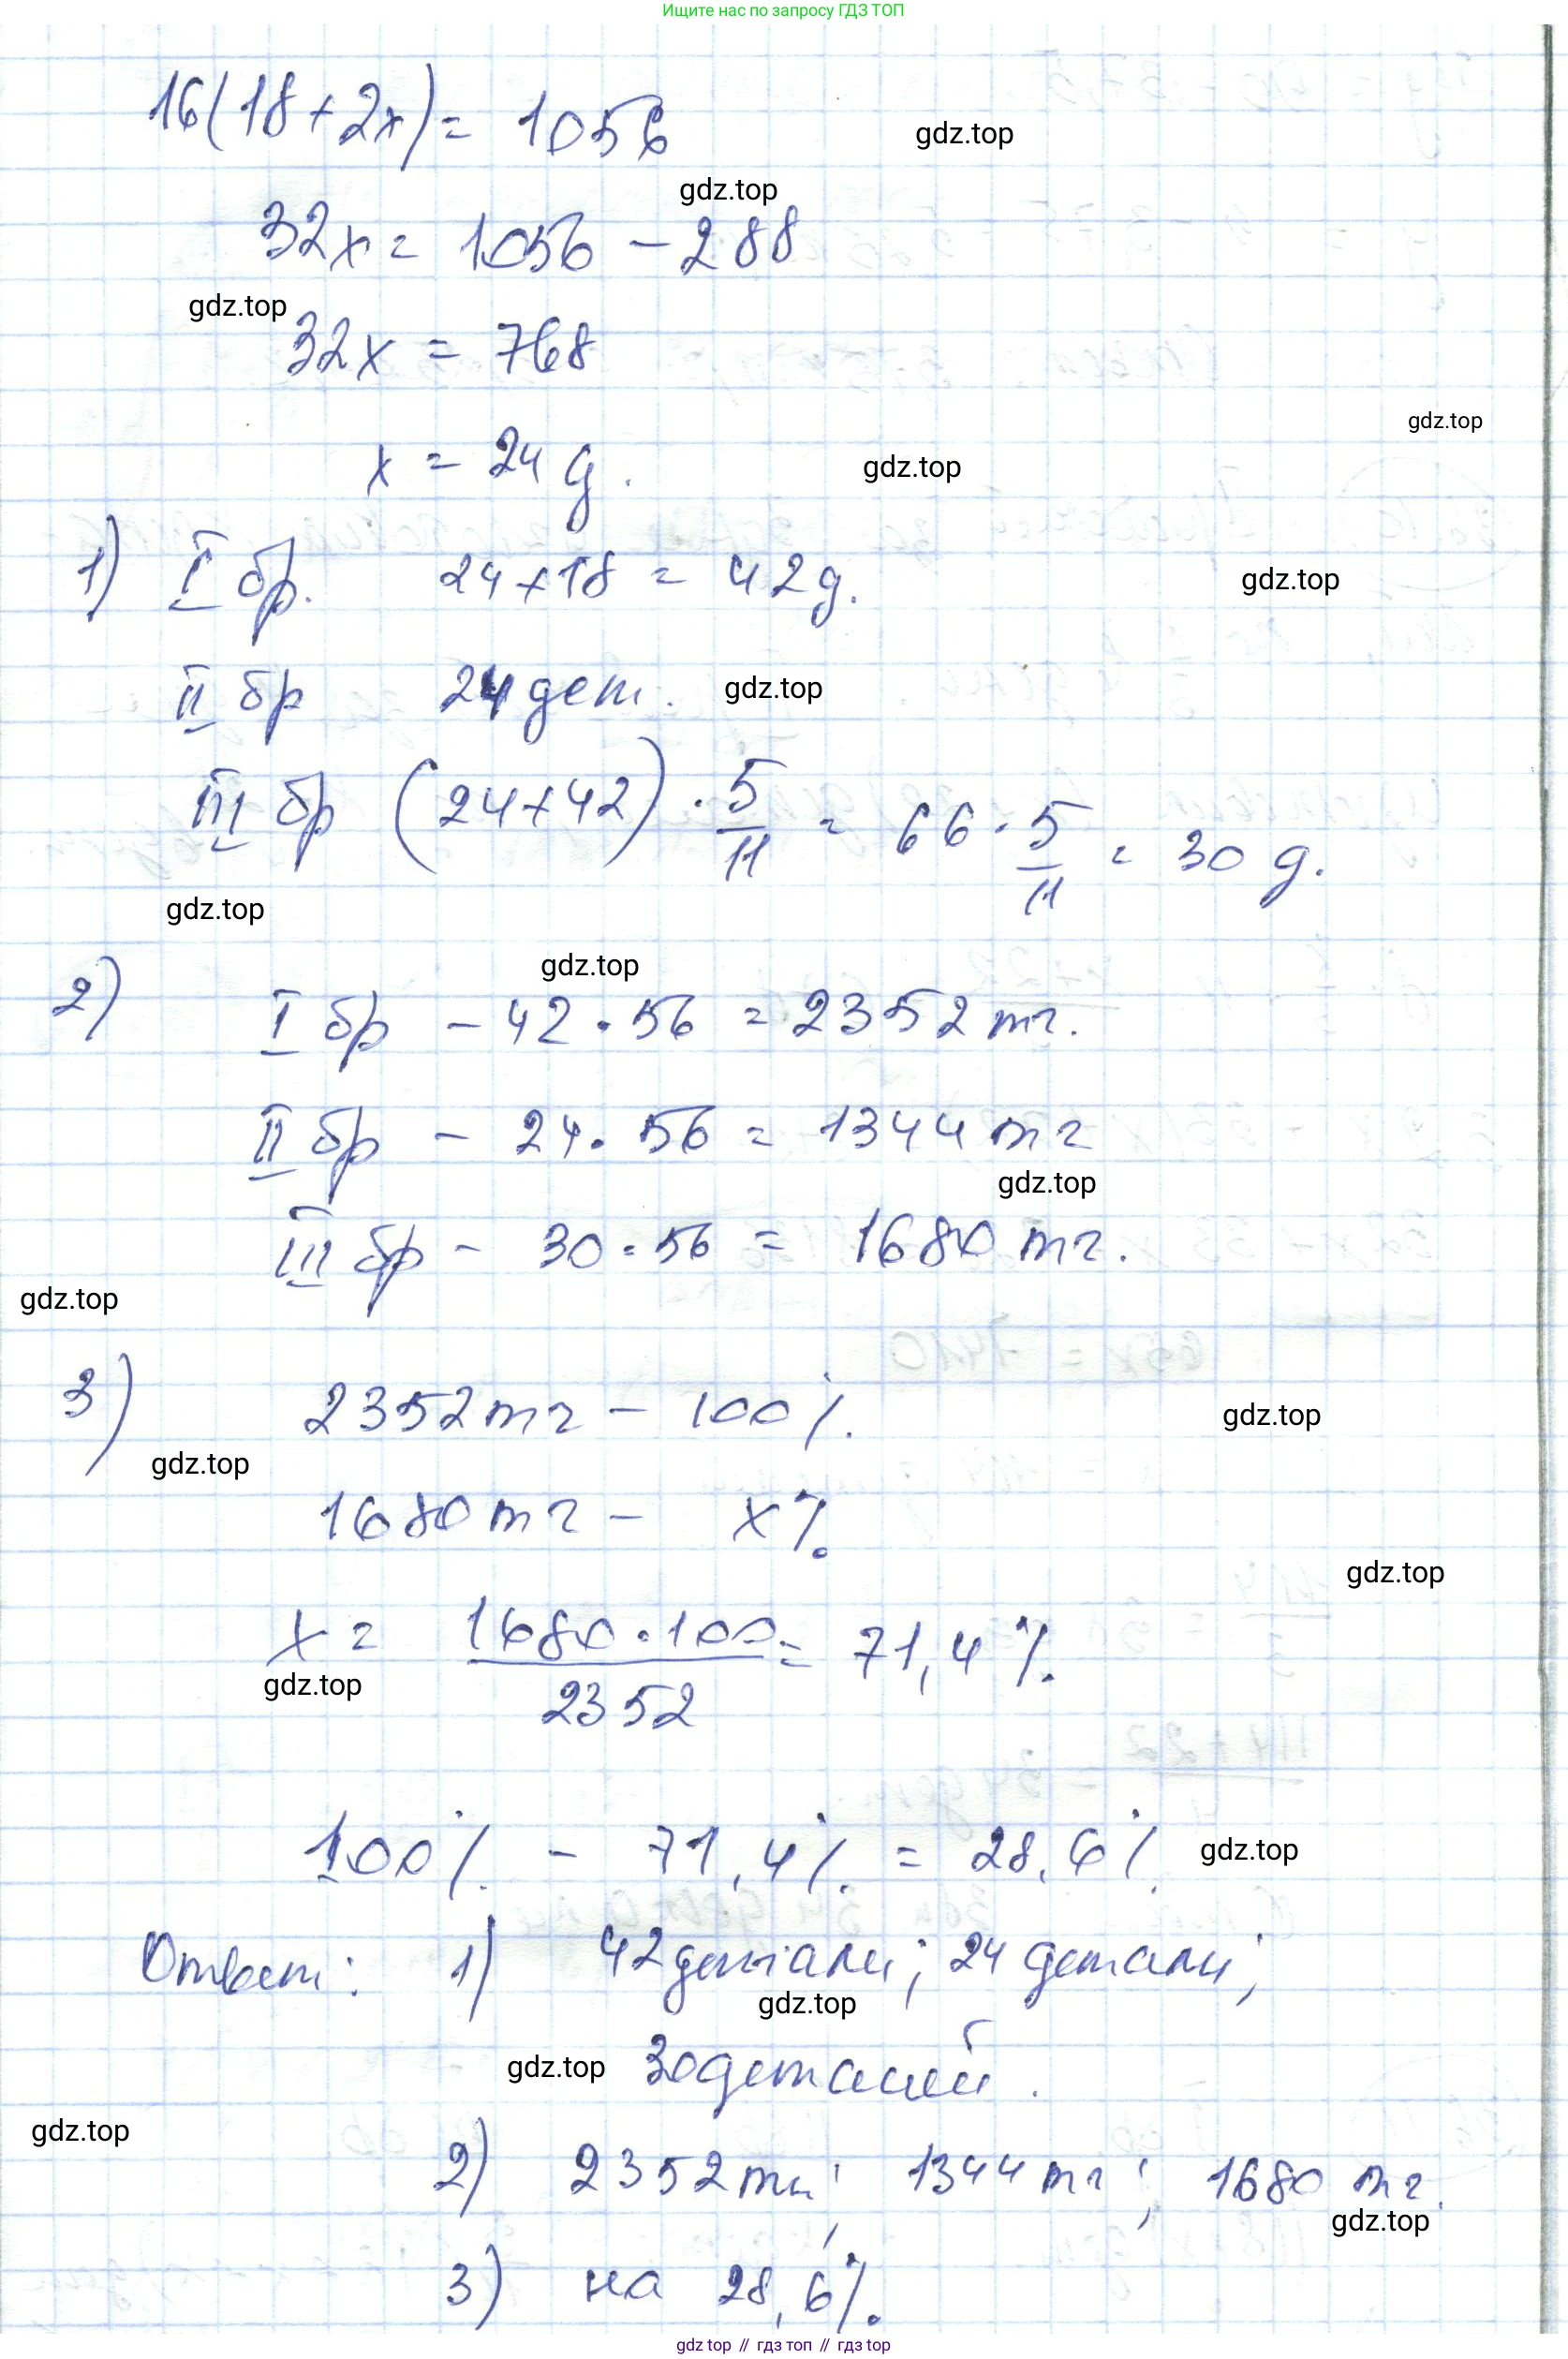 Ищите нас по запросу ГДЗ ТОП
16(18+2x) = 1056
gdz.top
gdz.top
32x = 1056 - 288
gdz.top
32x = 768
gdz.top
x = 24 д.
gdz.top
1) I бр. 24+18 = 42 д.
gdz.top
II бр 24 дет.
gdz.top
III бр (24+42) · 5/11 = 66 · 5/11 = 30 д.
gdz.top
gdz.top
2) I бр - 42 · 56 = 2352 тг.
II бр - 24 · 56 = 1344 тг
gdz.top
III бр - 30 · 56 = 1680 тг.
gdz.top
3) 2352 тг - 100%
gdz.top
gdz.top
1680 тг - x%
gdz.top
x = 1680·100/2352 = 71,4%
gdz.top
100% - 71,4% = 28,6%
gdz.top
Ответ: 1) 42 детали; 24 детали;
gdz.top
30 деталей.
gdz.top
gdz.top
2) 2352 тг; 1344 тг; 1680 тг.
gdz.top
3) на 28,6%.
gdz top // гдз топ // гдз top